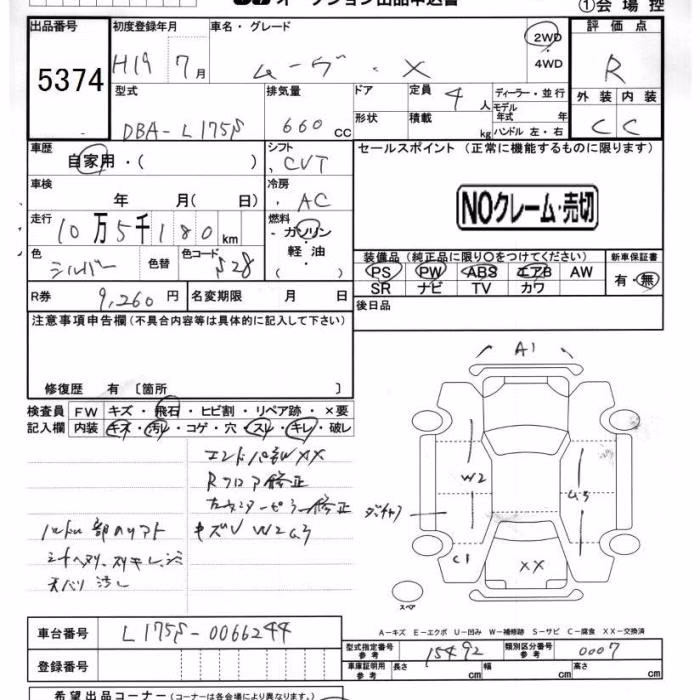 オークション出品申込書
①会場控
出品番号 初度登録年月 車名・グレード 評価点
5374 H19 7月 ムーヴ・X 2WD・4WD R
型式 排気量 ドア 定員 4人 ディーラー・並行 外装 内装
DBA-L175S 660cc 形状 積載 kg モデル年式 年 ハンドル 左・右 C C
車歴 シフト セールスポイント (正常に機能するものに限ります)
自家用・( ) CVT
車検 冷房
年 月( 日) AC NOクレーム・売切
走行 10万5千180km 燃料
ガソリン・軽油・( )
色 シルバー 色替 色コード S28
装備品(純正品に限り○をつけてください) 新車保証書
PS PW ABS エアB AW 有・無
SR ナビ TV カワ
R券 9,260円 名変期限 月 日 後日品
注意事項申告欄(不具合内容等は具体的に記入して下さい)
修復歴 有 〔箇所 〕
検査員 FW キズ・飛石・ヒビ割・リペア跡・×要
記入欄 内装 キズ・汚れ・コゲ・穴・スレ・キレ・破レ
エンドパネルXX
Rフロア修正
キズU W2 U3
A1
W2
U3
C1
XX
スペア
A-キズ E-エクボ U-凹み W-補修跡 S-サビ C-腐食 XX-交換済
車台番号 L175S-0066244
登録番号
型式指定番号 参考 15492 類別区分番号 参考 0007
車庫証明用 参考 長さ cm 幅 cm 高さ cm
希望出品コーナー(コーナーは各会場により異なります。)